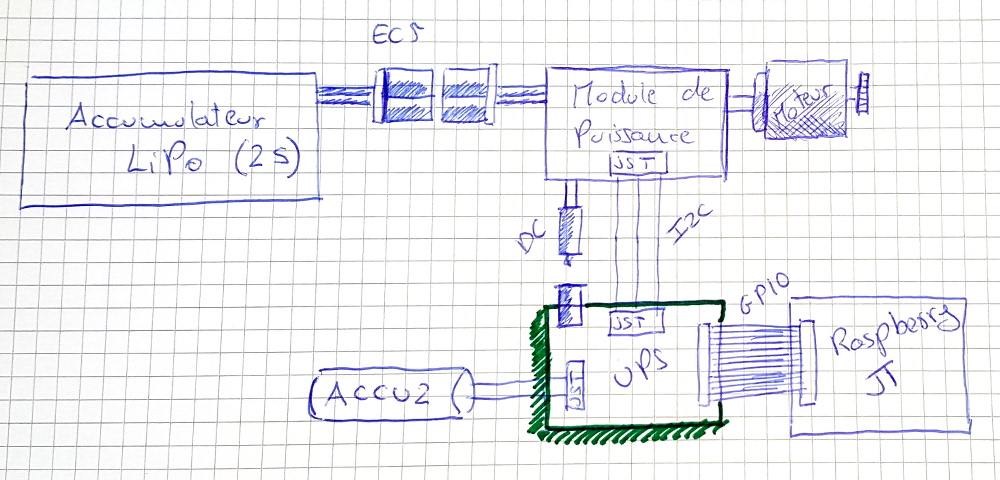 EC5
Accumulateur
LiPo (2S)
Module de
Puissance
JST
Moteur
DC
I2C
GPIO
JST
UPS
JST
ACCU2
Raspberry